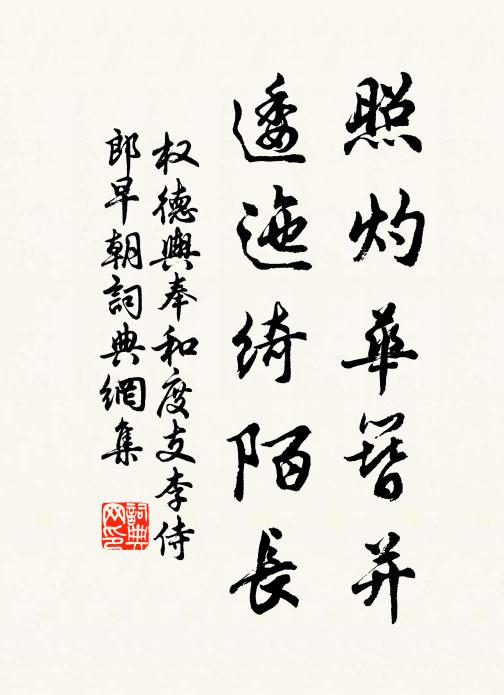 照灼華簪並
逶迤綺陌長
权德輿奉和度支李侍
郎早朝詞典網集
詞典
网印